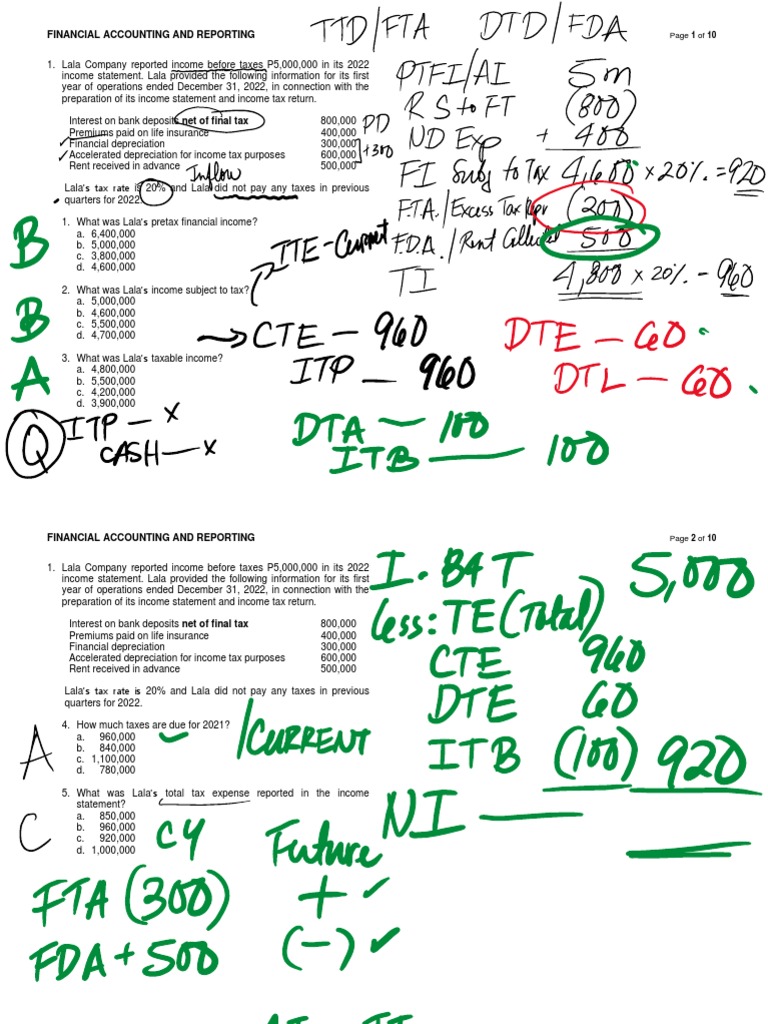 FINANCIAL ACCOUNTING AND REPORTING
TTD/FTA DTD/FDA
Page 1 of 10
1. Lala Company reported income before taxes P5,000,000 in its 2022
income statement. Lala provided the following information for its first
year of operations ended December 31, 2022, in connection with the
preparation of its income statement and income tax return.
Interest on bank deposits net of final tax 800,000
Premiums paid on life insurance 400,000
Financial depreciation 300,000
Accelerated depreciation for income tax purposes 600,000
Rent received in advance 500,000
PD
+300
Inflow
Lala's tax rate is 20% and Lala did not pay any taxes in previous
quarters for 2022.
PTFI/AI 5m
RS to FT (800)
ND Exp + 400
FI Subj to Tax 4,600 x 20% = 920
FTA/Excess Tax (200)
FDA/Rent Collected 500
TI 4,800 x 20% - 960
1. What was Lala's pretax financial income?
a. 6,400,000
b. 5,000,000
c. 3,800,000
d. 4,600,000
B
ITE-Current
2. What was Lala's income subject to tax?
a. 5,000,000
b. 4,600,000
c. 5,500,000
d. 4,700,000
B
3. What was Lala's taxable income?
a. 4,800,000
b. 5,500,000
c. 4,200,000
d. 3,900,000
A
→ CTE - 960
ITP - 960
DTE - 60
DTL - 60
Q ITP - x
CASH - x
DTA - 100
ITB - 100
FINANCIAL ACCOUNTING AND REPORTING
Page 2 of 10
1. Lala Company reported income before taxes P5,000,000 in its 2022
income statement. Lala provided the following information for its first
year of operations ended December 31, 2022, in connection with the
preparation of its income statement and income tax return.
Interest on bank deposits net of final tax 800,000
Premiums paid on life insurance 400,000
Financial depreciation 300,000
Accelerated depreciation for income tax purposes 600,000
Rent received in advance 500,000
Lala's tax rate is 20% and Lala did not pay any taxes in previous
quarters for 2022.
I. B4 T 5,000
Less: TE (Total)
CTE 960
DTE 60
ITB (100) 920
NI
4. How much taxes are due for 2021?
a. 960,000
b. 840,000
c. 1,100,000
d. 780,000
A
/CURRENT
5. What was Lala's total tax expense reported in the income
statement?
a. 850,000
b. 960,000
c. 920,000
d. 1,000,000
C
CY Future
FTA (300) +
FDA + 500 (-)